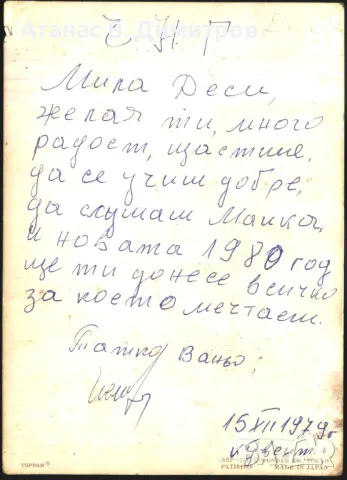 Атанас В. Димитров
Ч Н Г
Мила Деси,
желая ти, много
радост, щастие,
да се учиш добре,
да слушаш Майка,
и новата 1980 год
ще ти донесе всичко
за което мечтаеш.
Татко Ваньо:
15 XII 1979г
TOPPAN®
MADE IN JAPAN